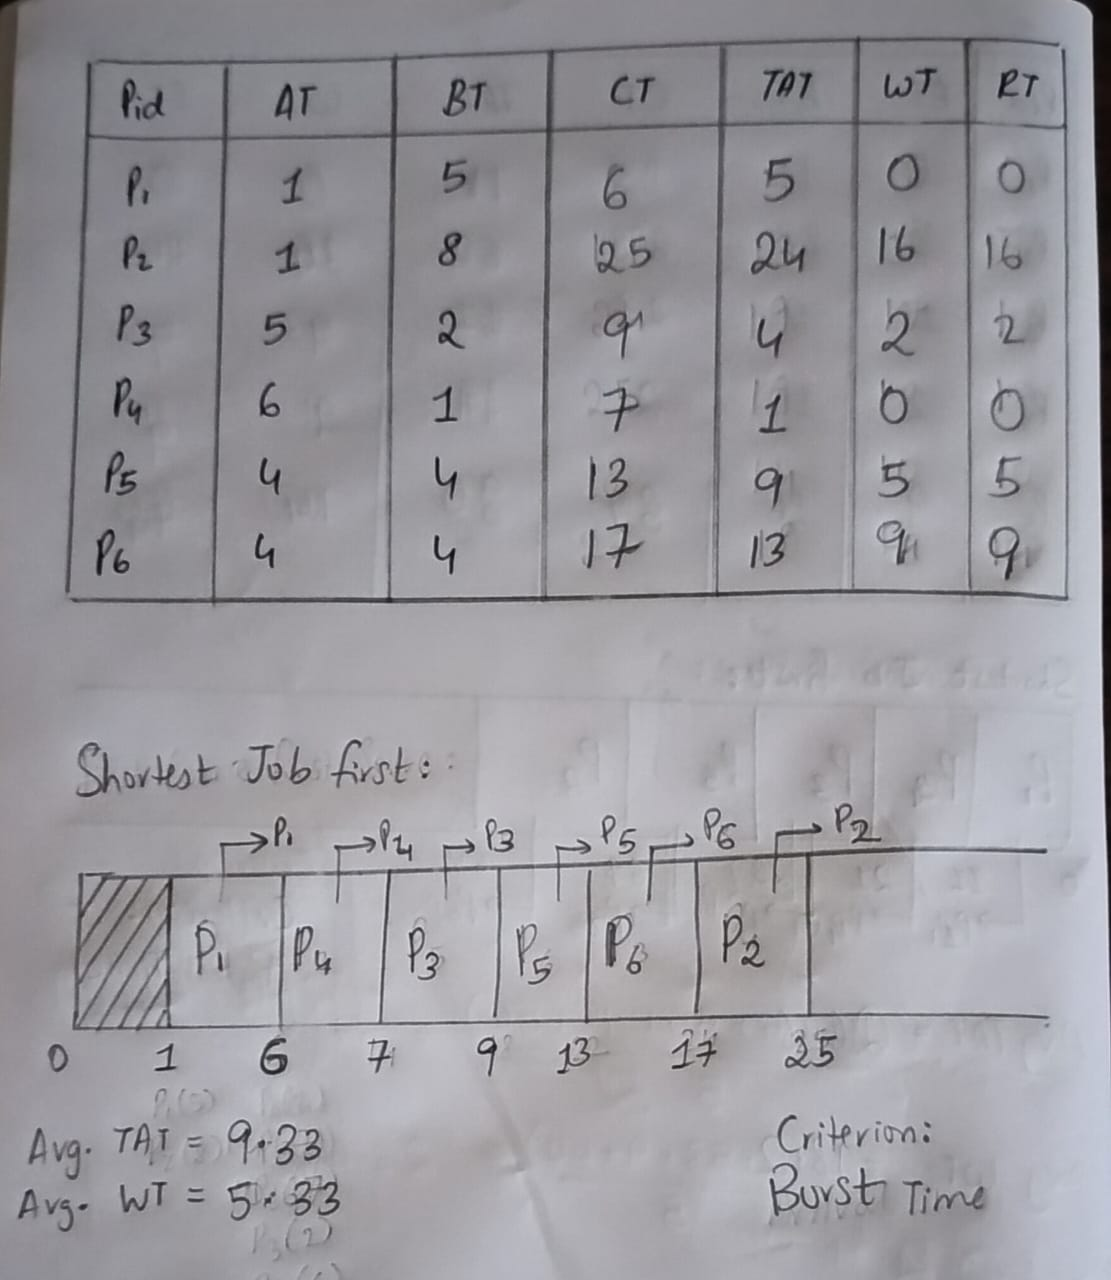 Pid AT BT CT TAT WT RT
P1 1 5 6 5 0 0
P2 1 8 25 24 16 16
P3 5 2 9 4 2 2
P4 6 1 7 1 0 0
P5 4 4 13 9 5 5
P6 4 4 17 13 9 9
Shortest Job first:
P1 P4 P3 P5 P6 P2
P1 P4 P3 P5 P6 P2
0 1 6 7 9 13 17 25
Avg. TAT = 9.33
Avg. WT = 5.33
Criterion:
Burst Time